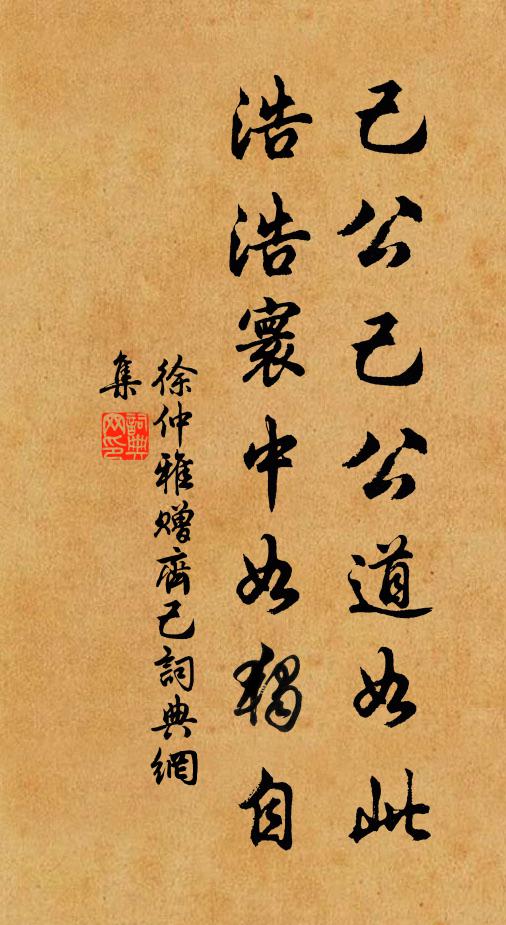 己公己公道如此
浩浩寰中如獨自
徐仲雅贈齊己詞典網
集
詞典
网印